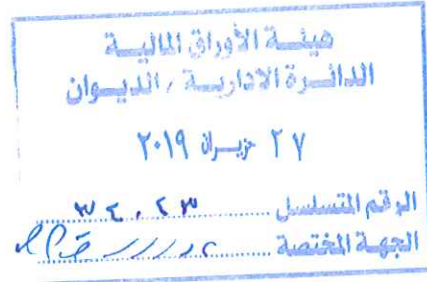 هيئة الأوراق المالية
الدائرة الادارية / الديوان
٢٧ حزيران ٢٠١٩
الرقم المتسلسل ٣٤٠٢٣
الجهة المختصة